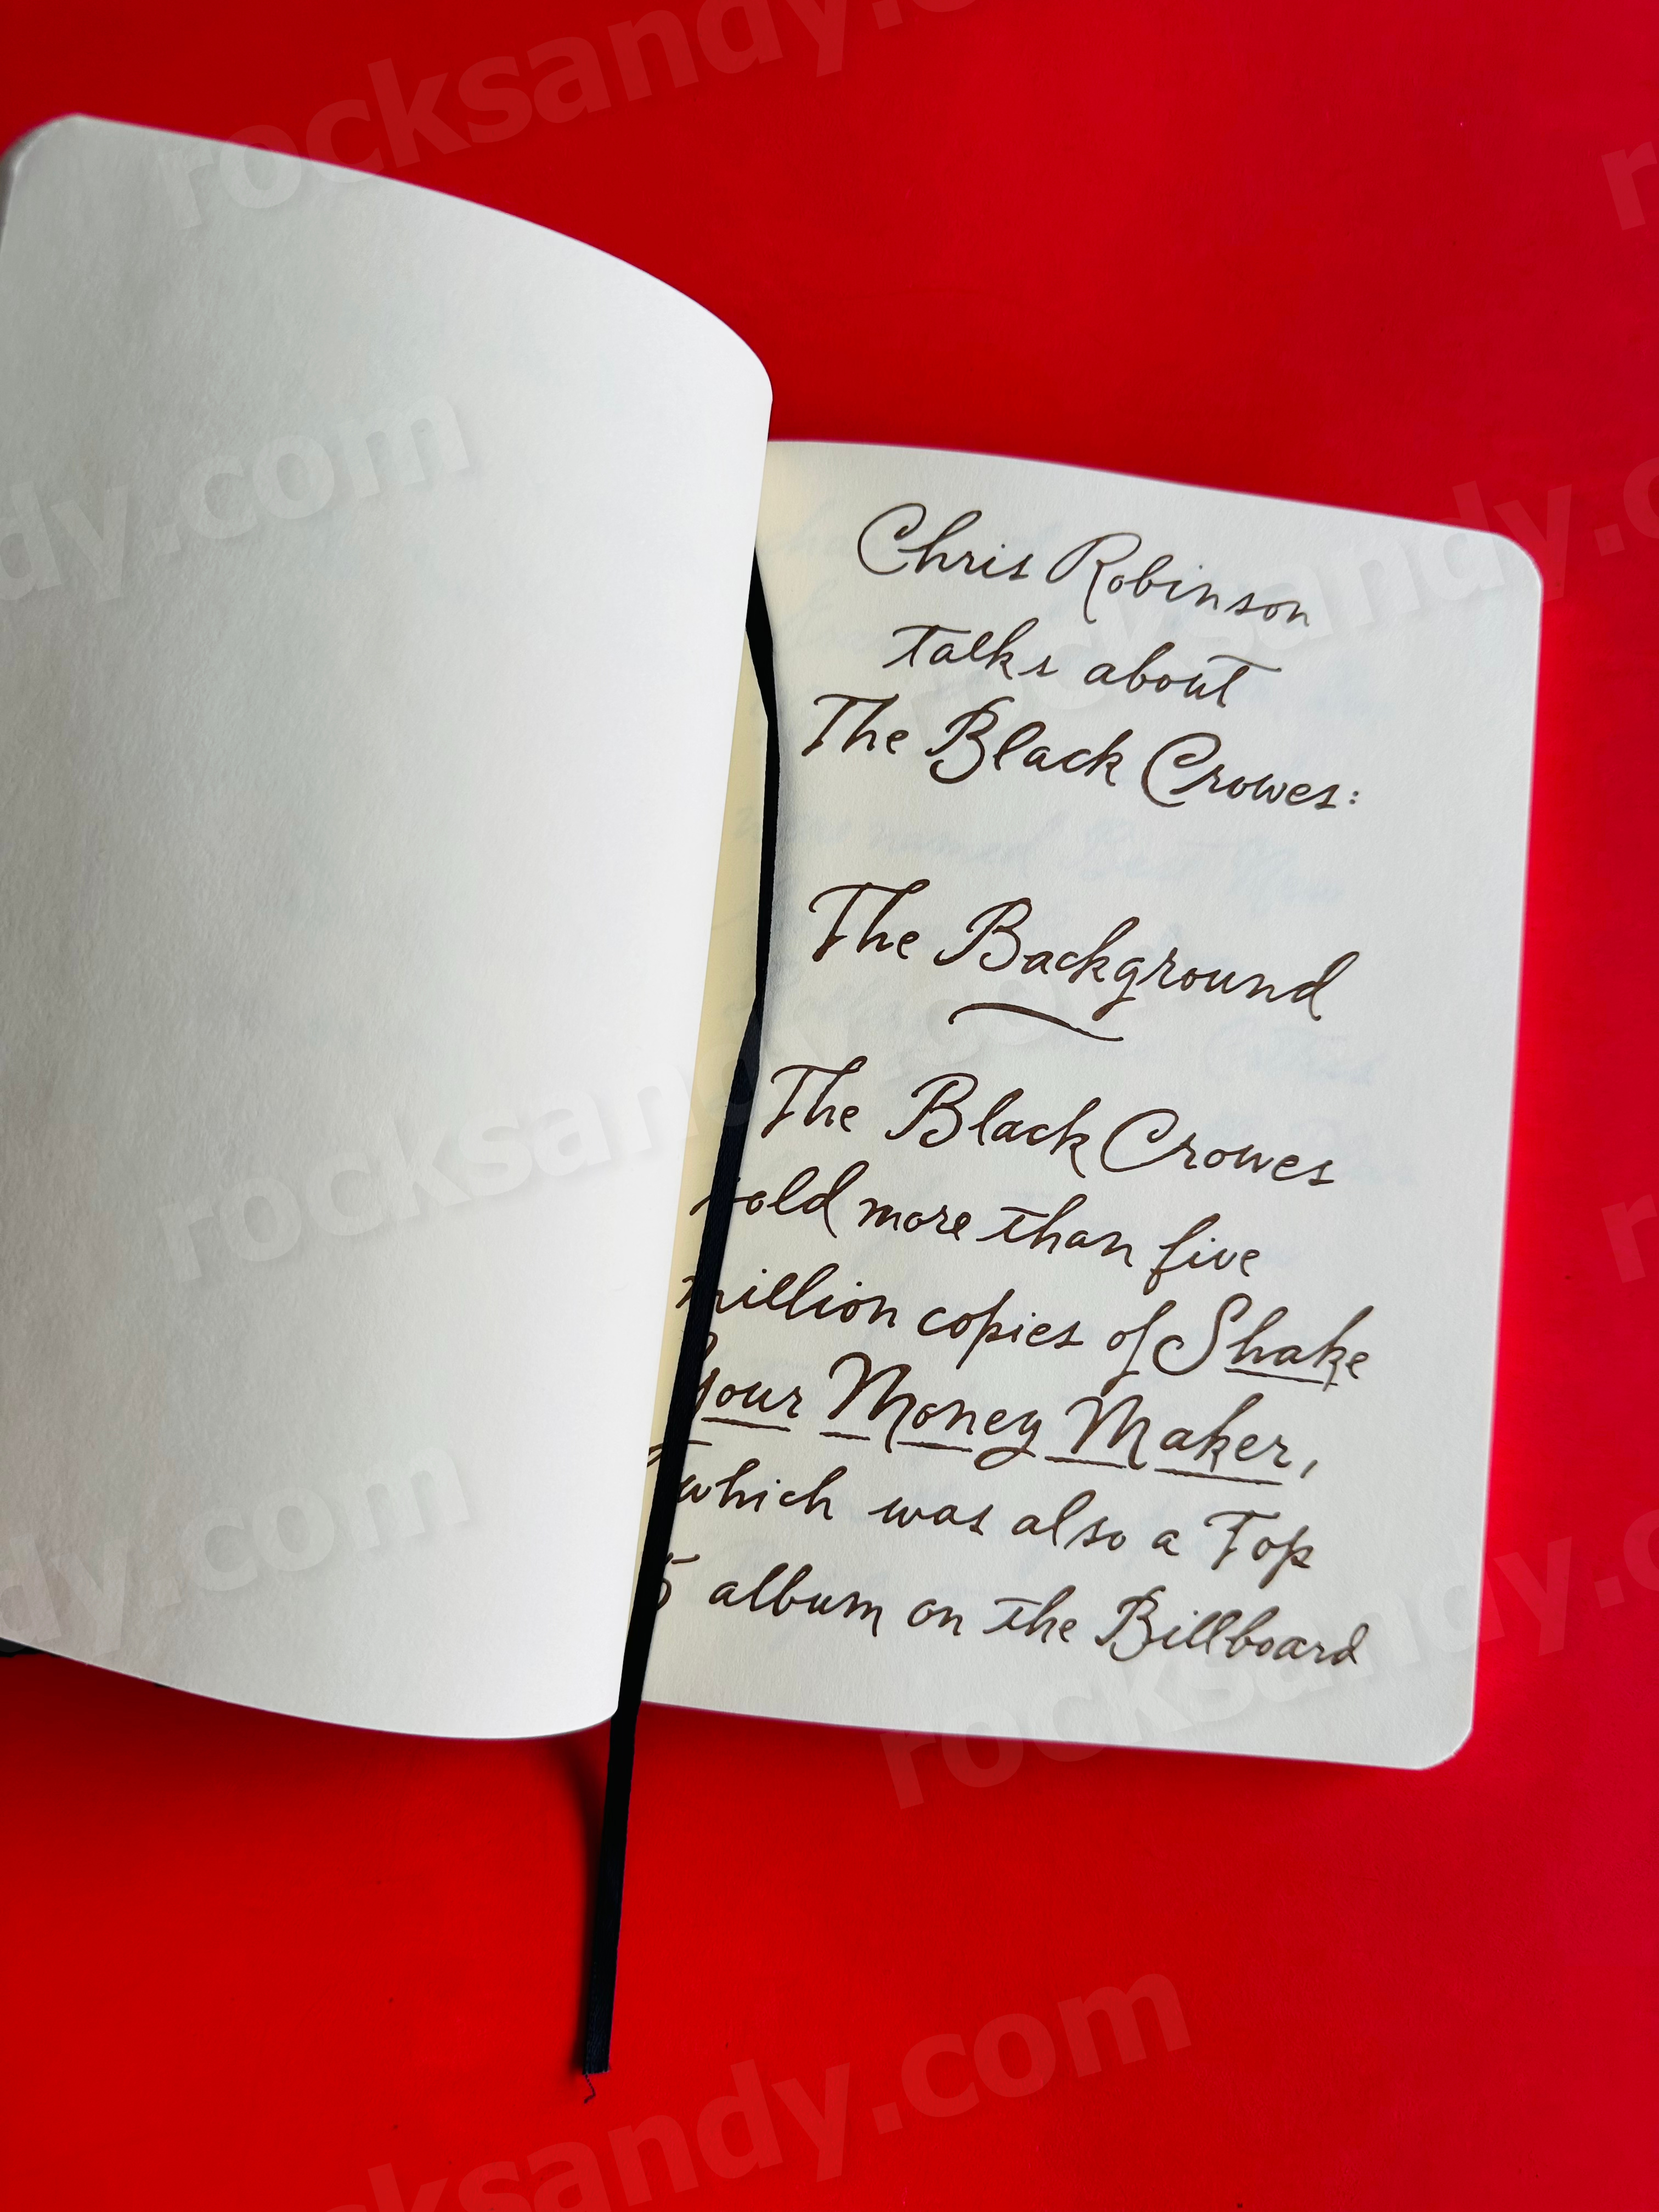 Chris Robinson
talks about
The Black Crowes:
The Background
The Black Crowes
sold more than five
million copies of Shake
Your Money Maker,
which was also a Top
5 album on the Billboard
rocksandy.com